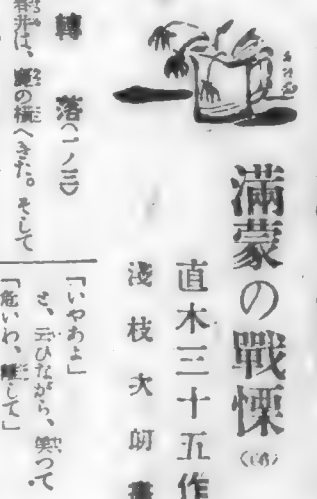 満蒙の戰慄
直木三十五作
淺枝次朗畫
轉落(一ノ三)
の横へきた。そして
「いやあよ」
と、云ひながら、笑つて、
「危いわ、離して」